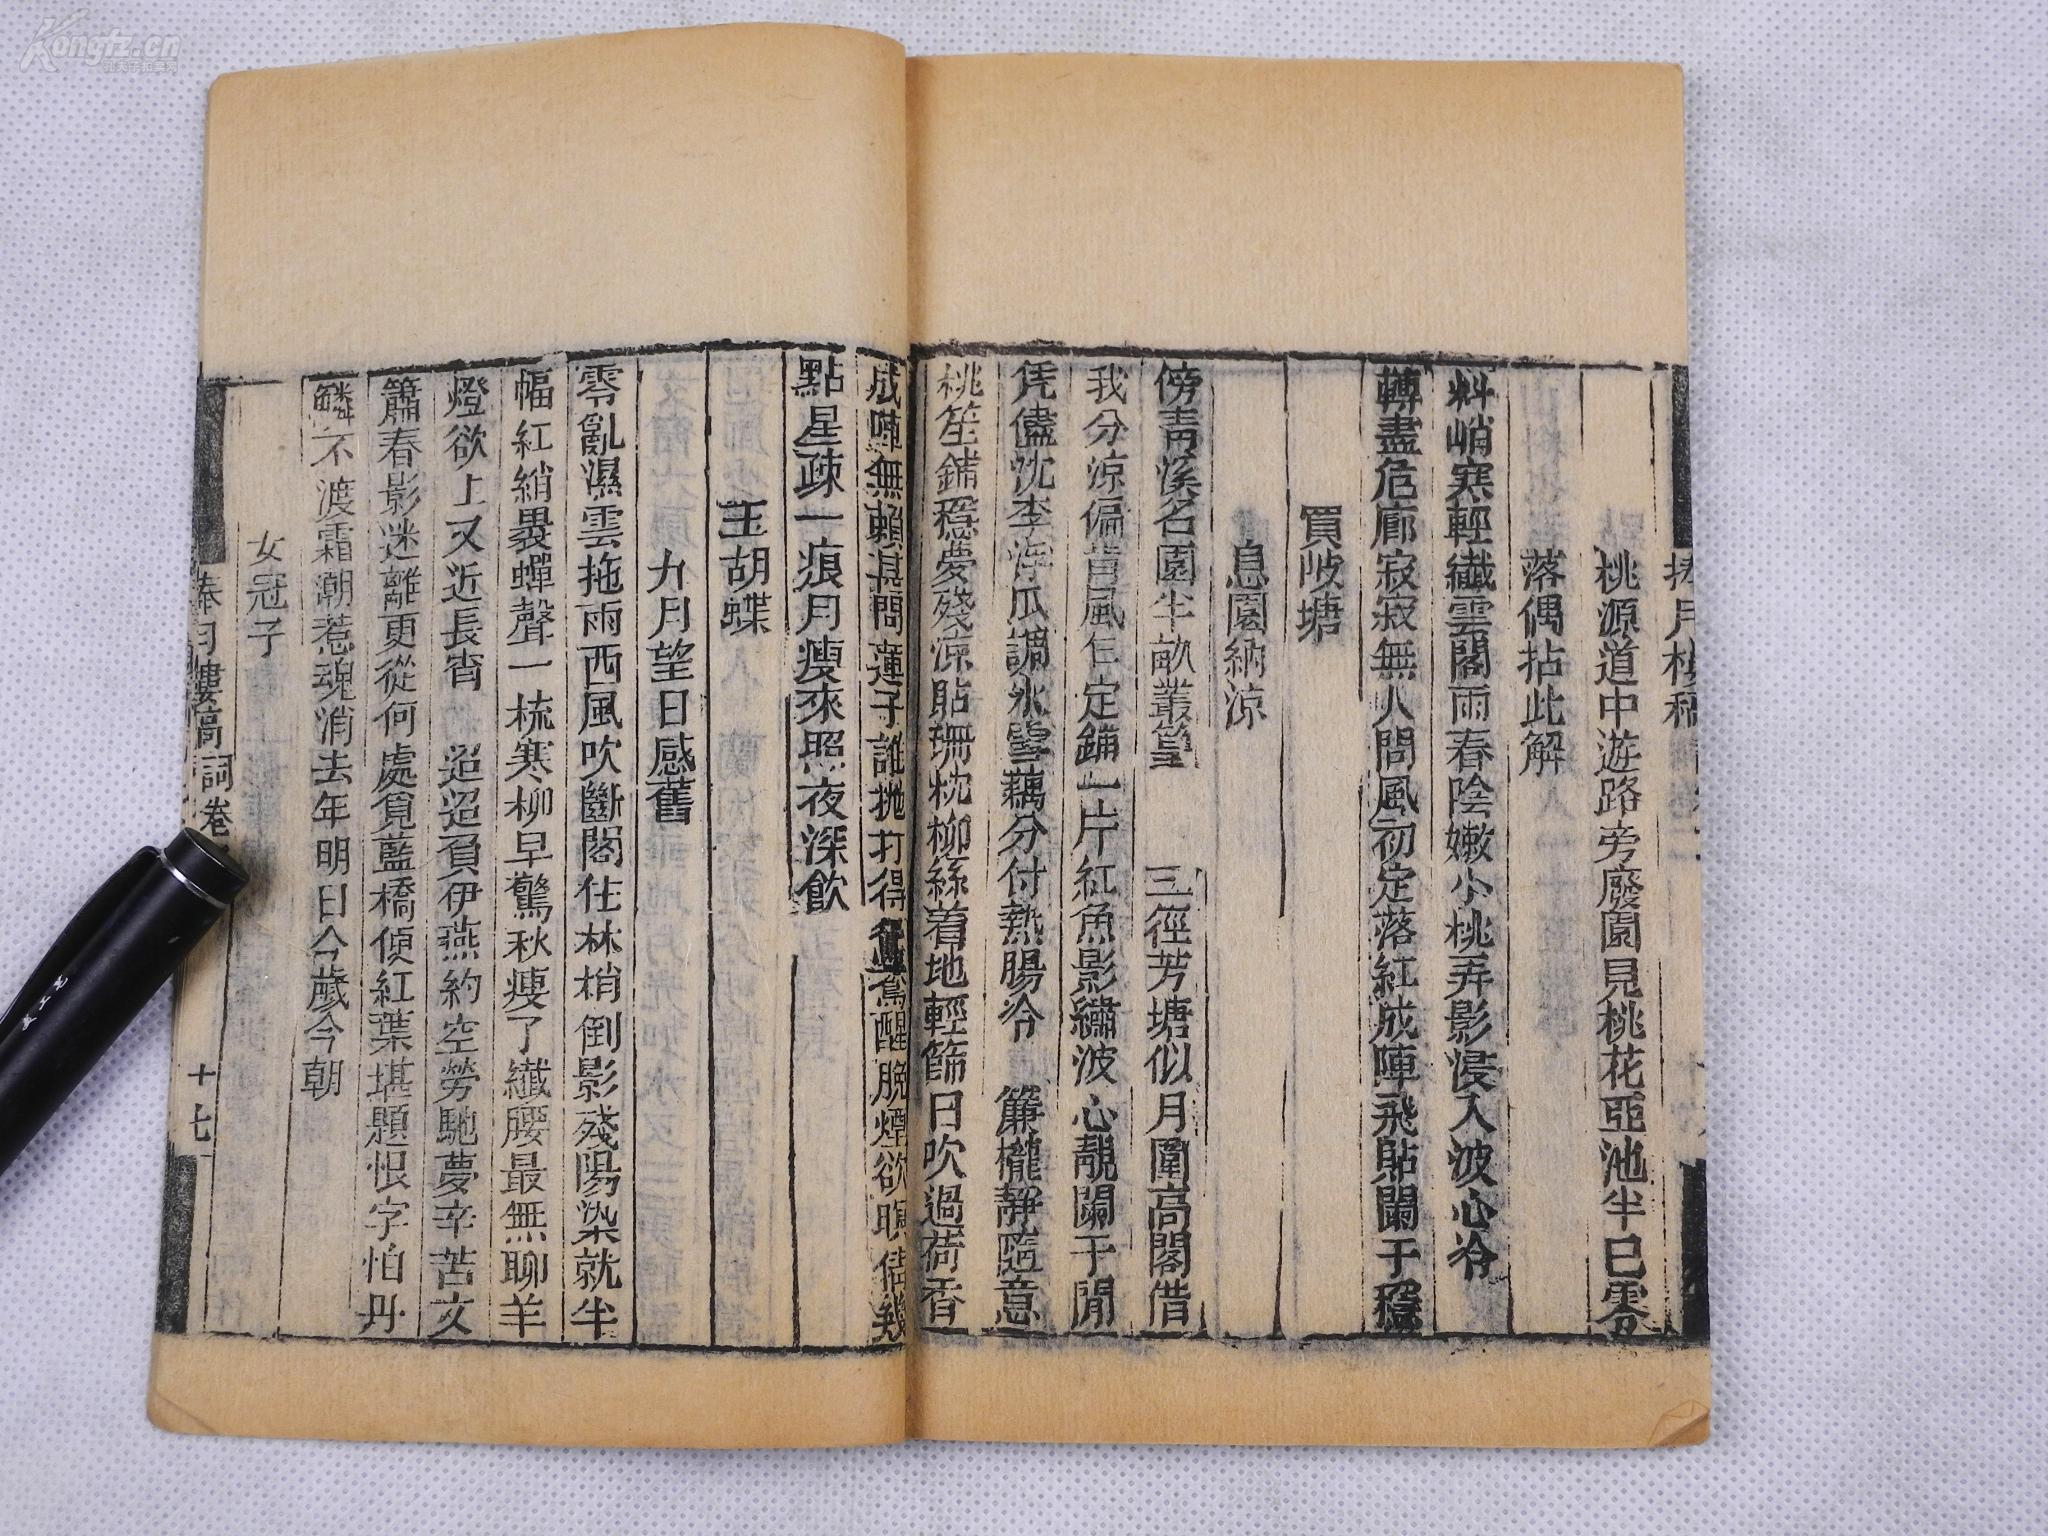 桃源道中遊路旁廢園見桃花亞池半已零
落偶拈此解
料峭寒輕纖雲閣雨春陰嫩小桃弄影浸入波心冷
轉盡危廊寂寂無人問風初定落紅成陣飛貼闌干穩
買陂塘
息園納涼
傍青溪名園半畝叢篁 三徑芳塘似月圍高閣借
我分涼偏肯風乍定鋪一片紅魚影繡波心靚闌干閒
凭儘沈李浮瓜調氷雪藕分付熱腸冷 簾櫳靜隨意
桃笙鋪穩夢殘涼貼珊枕柳絲着地輕篩日吹過荷香
成陣無賴甚問蓮子誰拋打得鴛鴦醒晚煙欲暝倩幾
點星疎一痕月瘦來照夜深飲
玉胡蝶
九月望日感舊
零亂濕雲拖雨西風吹斷閣住林梢倒影殘陽染就半
幅紅綃畏蟬聲一梳寒柳早驚秋瘦了纖腰最無聊羊
燈欲上又近長宵 迢迢負伊燕約空勞馳夢辛苦文
簫春影迷離更從何處覓藍橋傾紅葉堪題恨字怕丹
鱗不渡霜潮惹魂消去年明日今歲今朝
女冠子
捧月樓稿 詞卷 十七
Kongfz.cn
孔夫子拍卖网